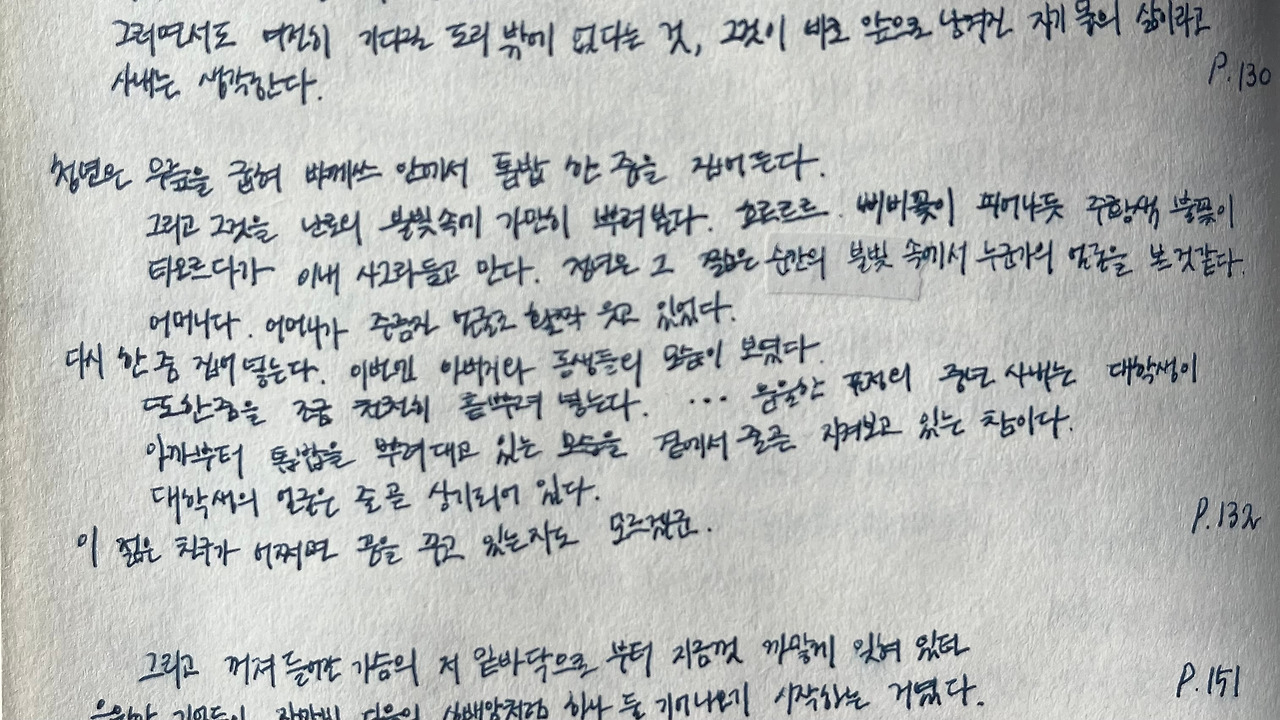 그러면서도 여전히 기다릴 도리 밖에 없다는 것, 그것이 바로 앞으로 남겨진 자기 몫의 삶이라고
사내는 생각한다.
P.130
청년은 무릎을 굽혀 바께쓰 안에서 톱밥 한 줌을 집어 든다.
그리고 그것을 난로의 불빛속에 가만히 뿌려본다. 호르르르. 삐비꽃이 피어나듯 주황색 불꽃이
타오르다가 이내 사그라들고 만다. 청년은 그 짧은 순간의 불빛 속에서 누군가의 얼굴을 본 것같다.
어머니다. 어머니가 주름진 얼굴로 활짝 웃고 있었다.
다시 한 줌 집어 넣는다. 이번엔 아버지와 동생들의 모습이 보였다.
또 한줌을 조금 천천히 흩뿌려 넣는다. ... 음울한 표정의 중년 사내는 대학생이
아까부터 톱밥을 뿌려대고 있는 모습을 곁에서 줄곧 지켜보고 있는 참이다.
대학생의 얼굴은 줄곧 상기되어 있다.
이 젊은 친구가 어쩌면 꿈을 꾸고 있는지도 모르겠군.
P.132
그리고 꺼져 들어간 가슴의 저 밑바닥으로 부터 지금껏 까맣게 잊혀 있던
P.151
기억들이 하나 둘 기어나오기 시작하는 거였다.